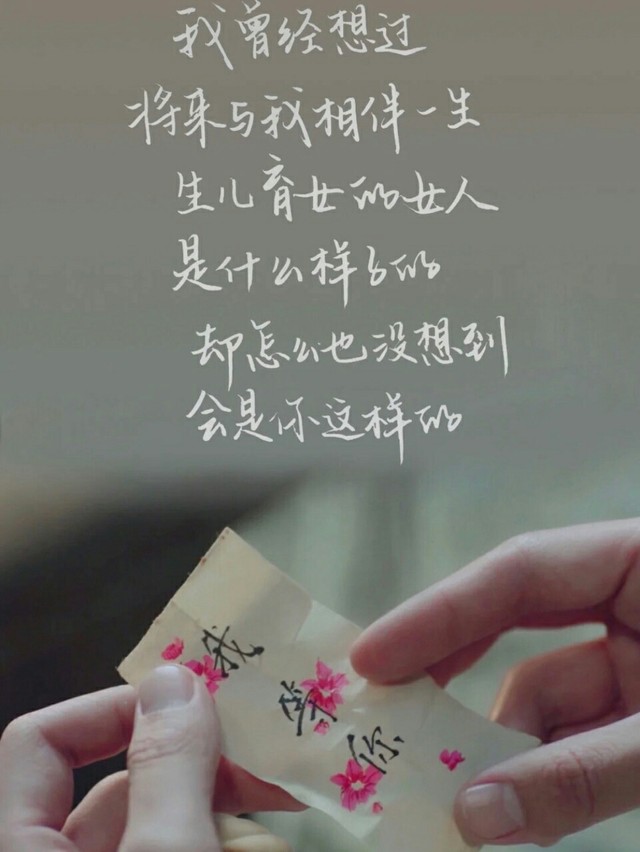 我曾经想过
将来与我相伴一生
生儿育女的女人
是什么样子的
却怎么也没想到
会是你这样的
我等你